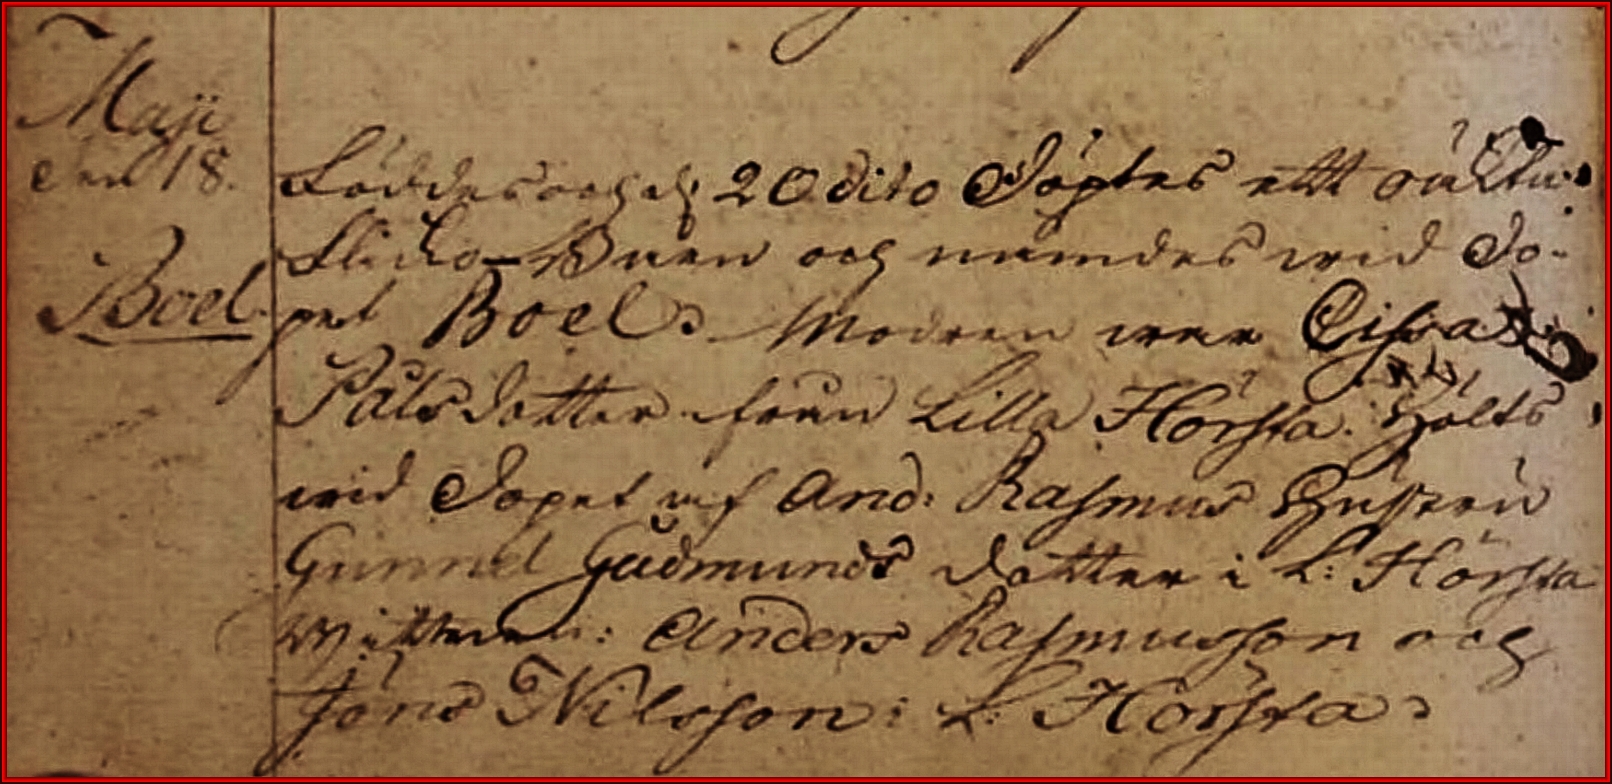 Maji
den 18.
Boel.
Föddes och d: 20 dito Döptes ett oäkta
Flicko-Barn och nämdes wid Dö-
pet Boel. Modren war Cissa
Pålsdotter från Lilla Hörsta. Hölts
wid Dopet af And: Rasmus Hustru
Gunnel Gudmunds dotter i L: Hörsta
Wittnen: Anders Rasmusson och
Jöns Nilsson i L. Hörsta.